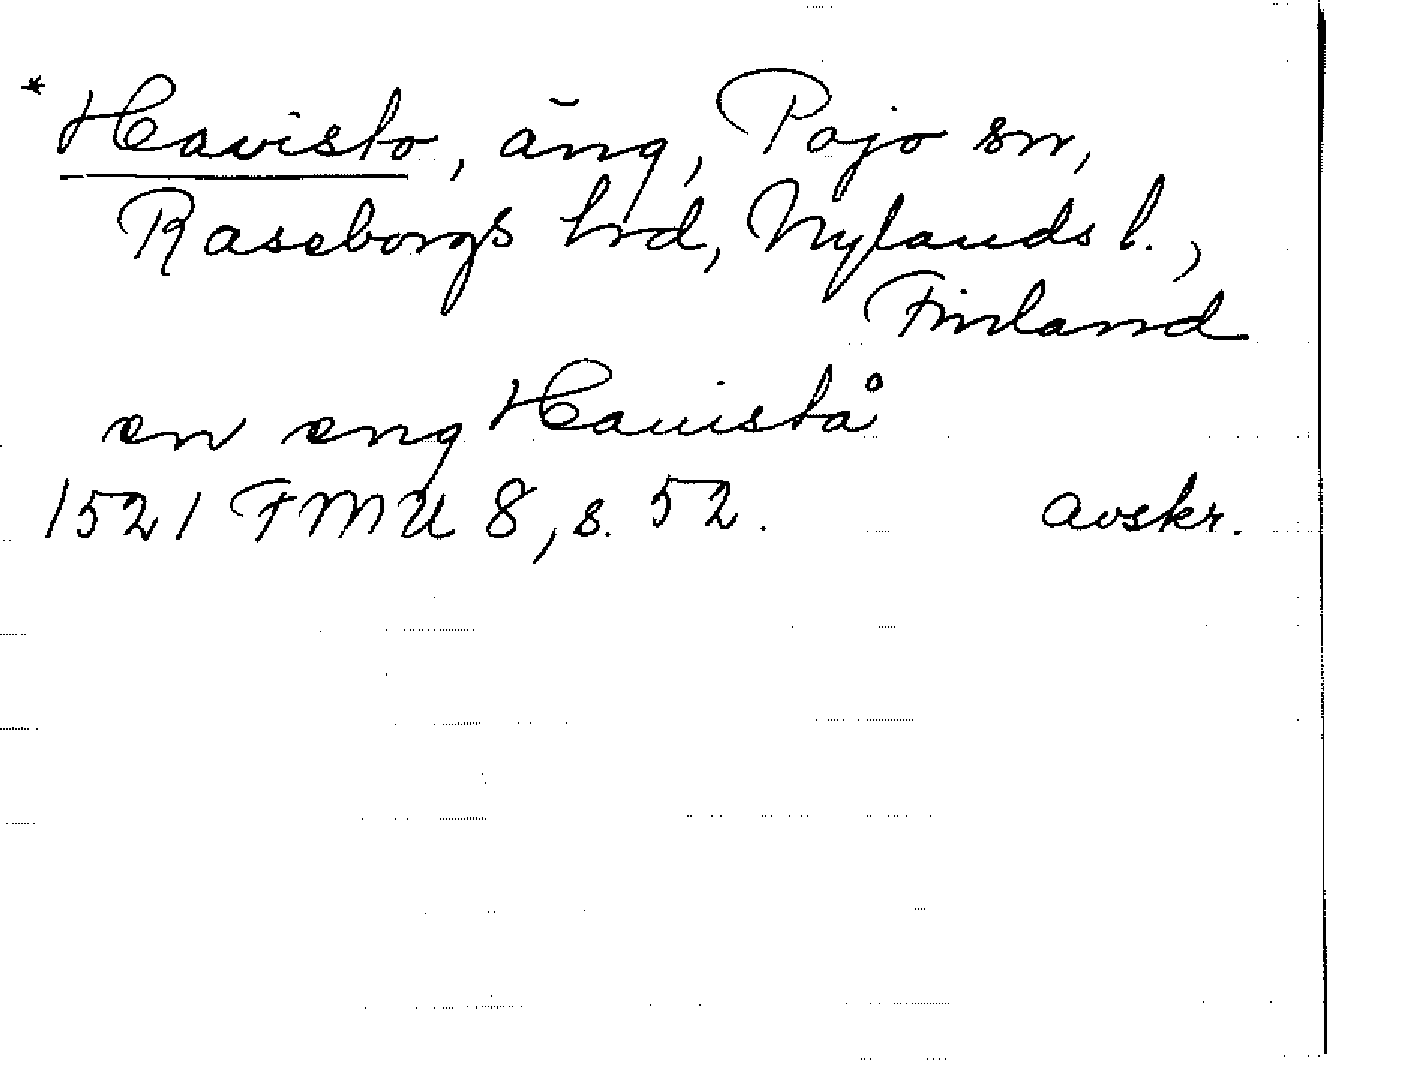 * Havisto, äng, Pojo sn,
Raseborgs hrd, Nylands l.,
Finland
en eng Hauistå
1521 FMU 8, s. 52. avskr.